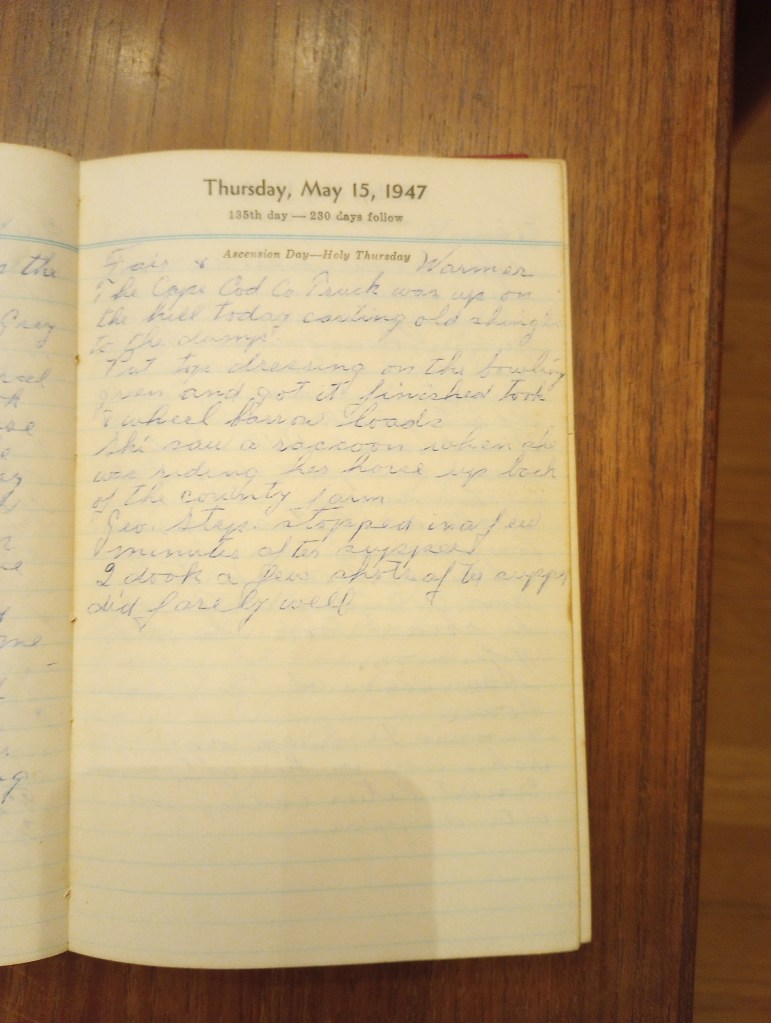 Thursday, May 15, 1947
135th day — 230 days follow
Ascension Day—Holy Thursday
Fair & Warmer
The Cape Cod Co Truck was up on
the hill today carting old shingles
to the dump.
Put top dressing on the bowling
green and got it finished took
wheel barrow loads
Ski saw a raccoon when she
was riding her horse up back
of the county farm
Geo. stopped in a few
minutes after supper
I took a few shots after supper
did farely well
the
Grey
me